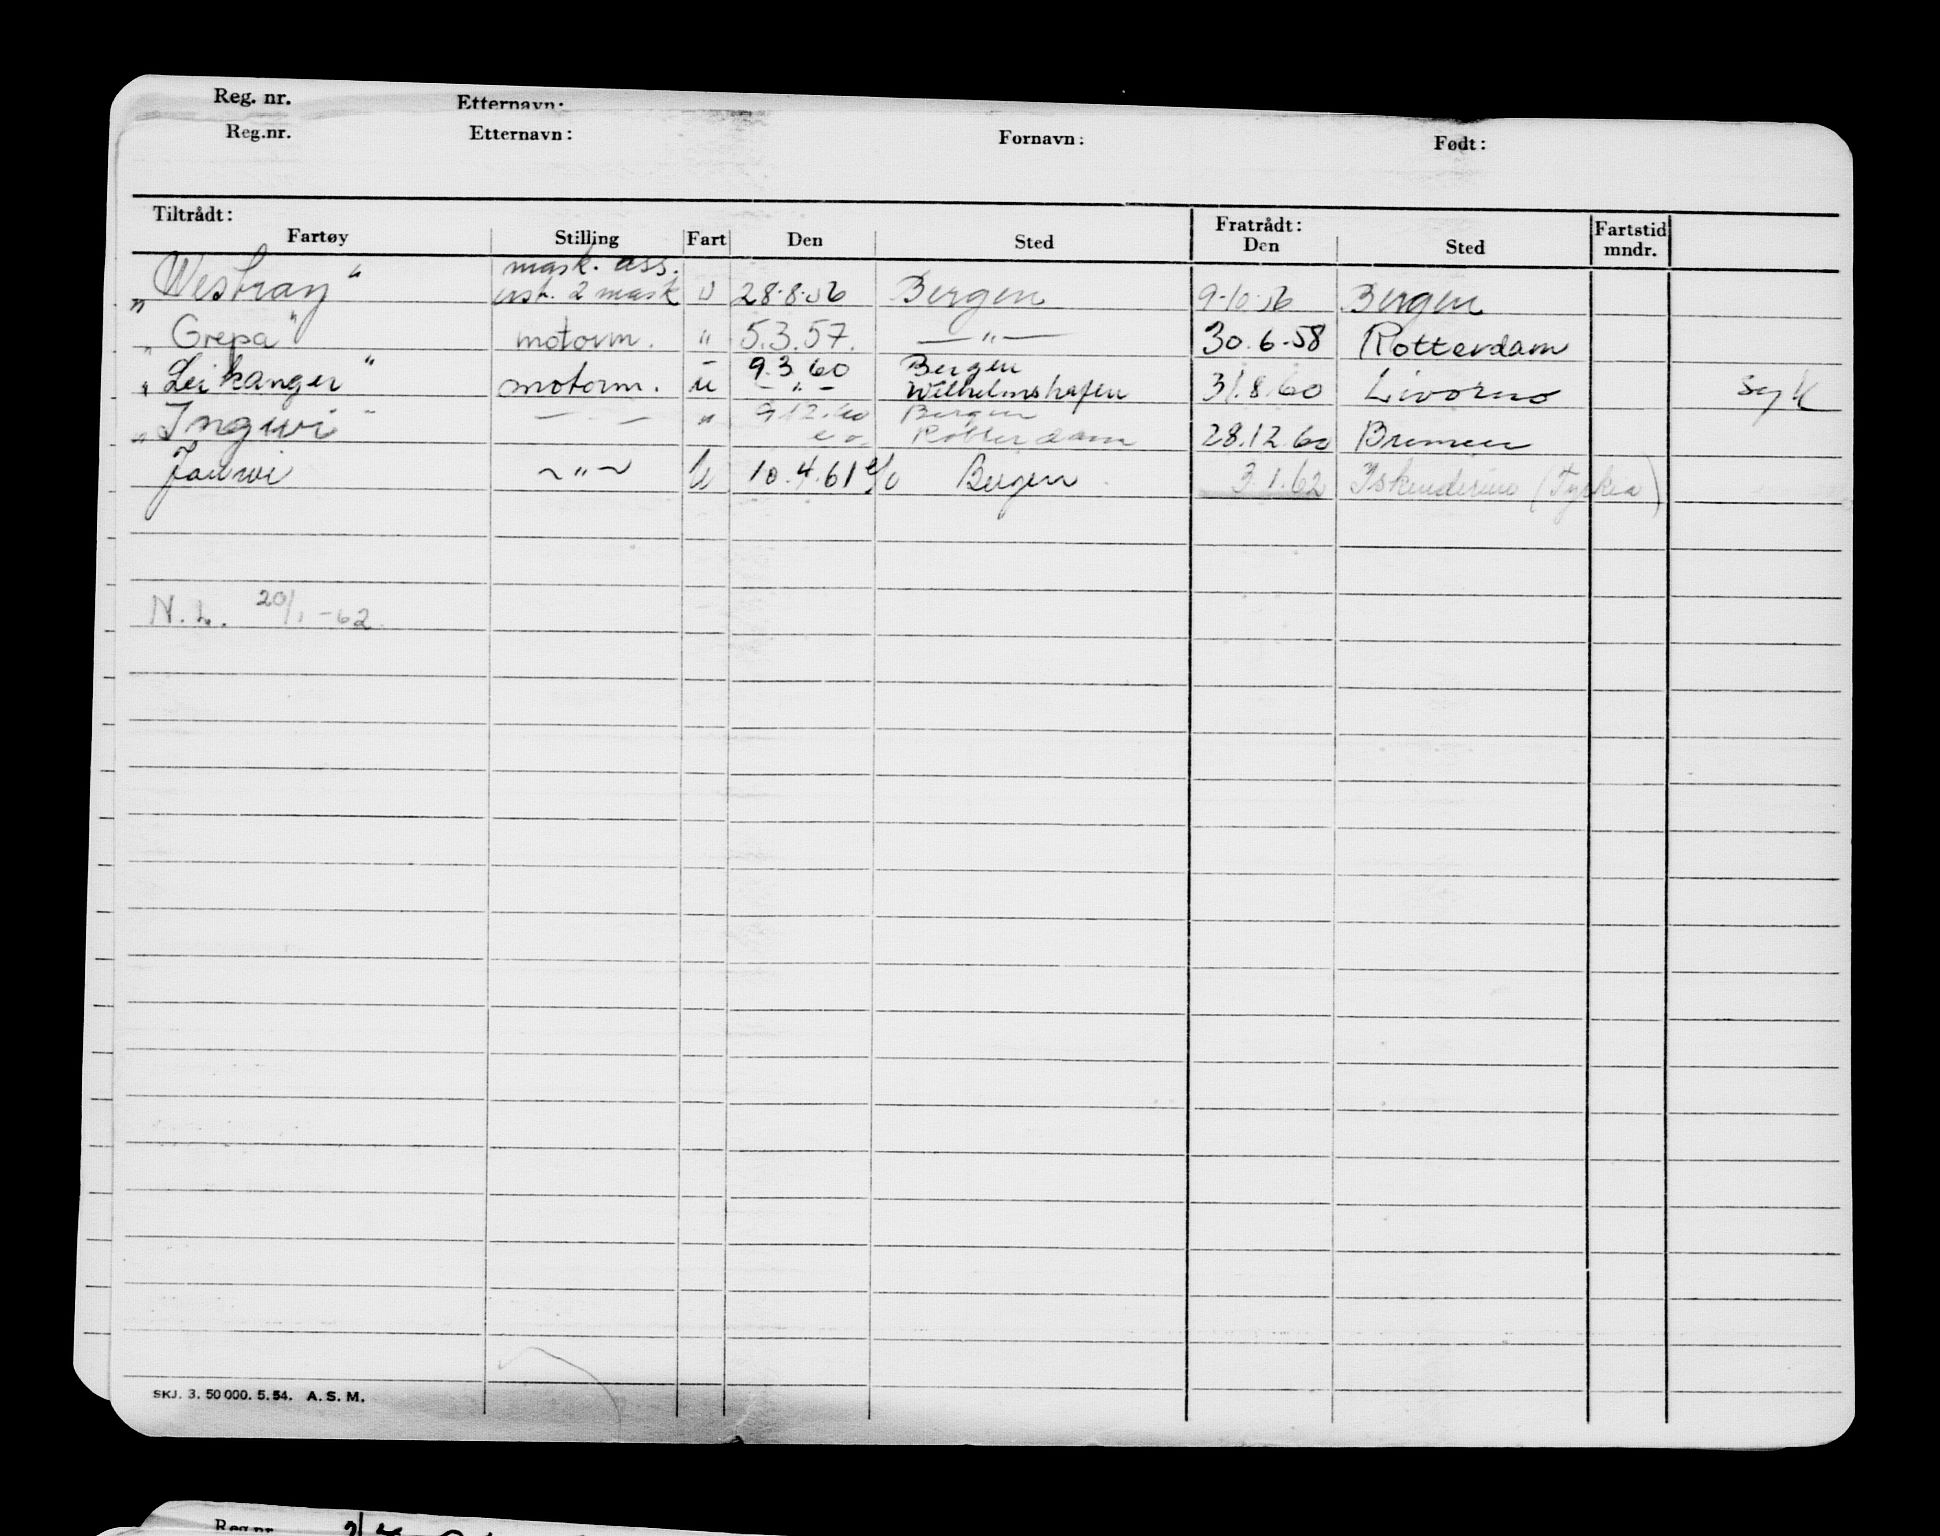 Reg. nr. Etternavn:
Reg.nr. Etternavn: Fornavn: Født:
Tiltrådt: Fratrådt: Fartstid
Fartøy Stilling Fart Den Sted Den Sted mndr.
mask. ass.
"Westray" erst. 2 mask u 28.8.56 Bergen 9-10.56 Bergen
"Grepa" motorm. " 5.3.57. —"— 30.6-58 Rotterdam
9.3.60 Bergen
"Leikanger" motorm. u - " - Wilhelmshafen 31.8.60 Livorno syk
9.12.60 Bergen
"Ingwi" — — " e.o. Rotterdam 28.12.60 Bremen
Janwi ~"~ u 10.4.61 e/o Bergen 3.1.62 Iskenderun (Tyrkia)
N.L. 20/1-62.
SKJ. 3. 50 000. 5. 54. A. S. M.
Reg.nr.